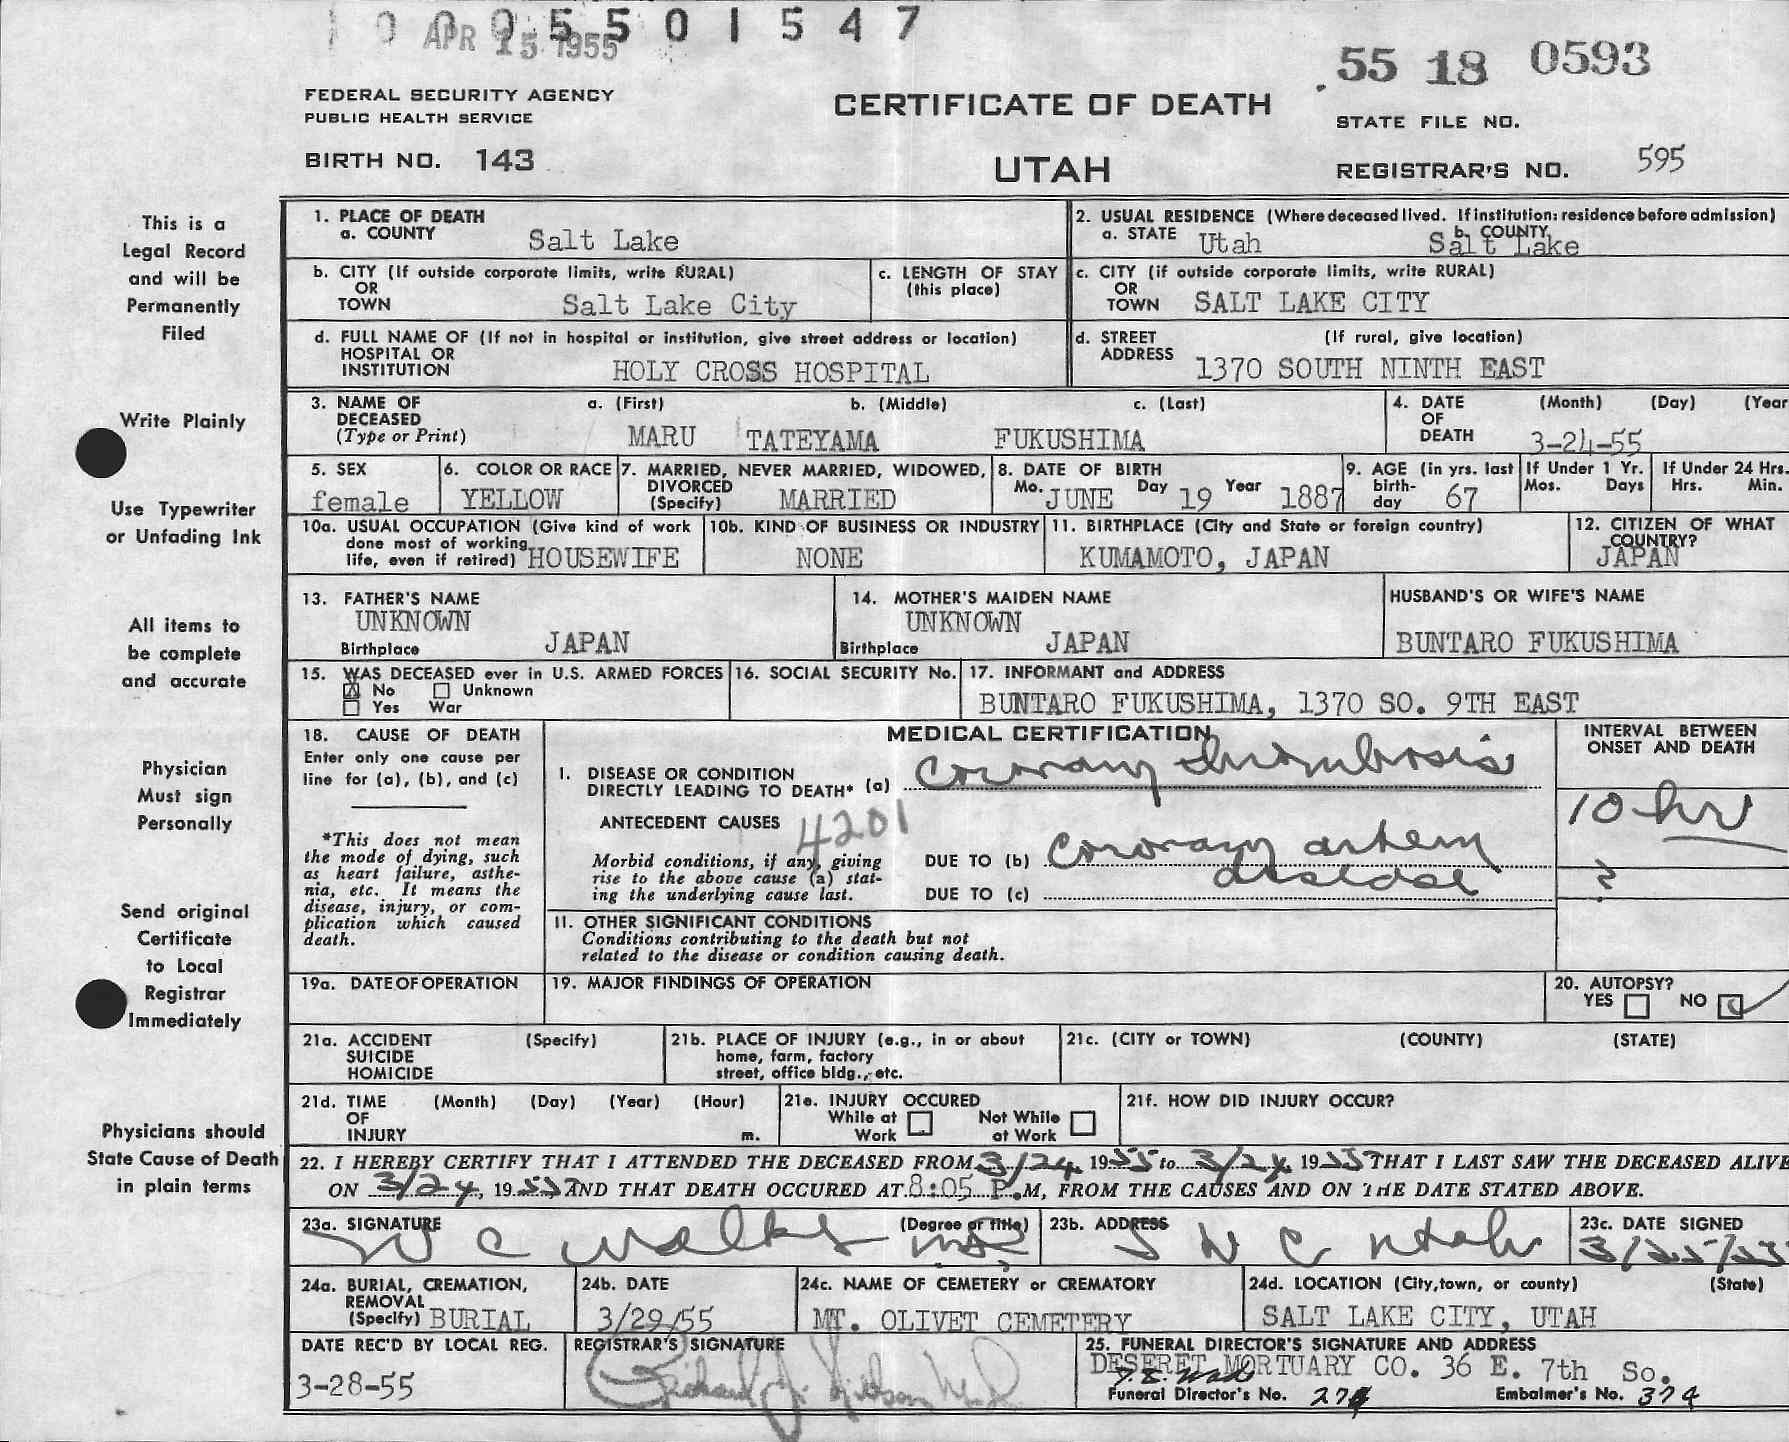 1 0 0 0 5 5 0 1 5 4 7
APR 15 1955
55 18 0593
FEDERAL SECURITY AGENCY
PUBLIC HEALTH SERVICE
CERTIFICATE OF DEATH
STATE FILE NO.
BIRTH NO. 143
UTAH
REGISTRAR'S NO. 595
This is a
Legal Record
and will be
Permanently
Filed
Write Plainly
Use Typewriter
or Unfading Ink
All items to
be complete
and accurate
Physician
Must sign
Personally
Send original
Certificate
to Local
Registrar
Immediately
Physicians should
State Cause of Death
in plain terms
1. PLACE OF DEATH
a. COUNTY Salt Lake
2. USUAL RESIDENCE (Where deceased lived. If institution: residence before admission)
a. STATE Utah b. COUNTY Salt Lake
b. CITY (If outside corporate limits, write RURAL)
OR
TOWN Salt Lake City
c. LENGTH OF STAY
(this place)
c. CITY (if outside corporate limits, write RURAL)
OR
TOWN SALT LAKE CITY
d. FULL NAME OF (If not in hospital or institution, give street address or location)
HOSPITAL OR
INSTITUTION HOLY CROSS HOSPITAL
d. STREET (If rural, give location)
ADDRESS 1370 SOUTH NINTH EAST
3. NAME OF a. (First) b. (Middle) c. (Last)
DECEASED
(Type or Print) MARU TATEYAMA FUKUSHIMA
4. DATE (Month) (Day) (Year
OF
DEATH 3-24-55
5. SEX
female
6. COLOR OR RACE
YELLOW
7. MARRIED, NEVER MARRIED, WIDOWED,
DIVORCED
(Specify) MARRIED
8. DATE OF BIRTH
Mo. JUNE Day 19 Year 1887
9. AGE (in yrs. last
birth-
day 67
If Under 1 Yr.
Mos. Days
If Under 24 Hrs.
Hrs. Min.
10a. USUAL OCCUPATION (Give kind of work
done most of working
life, even if retired) HOUSEWIFE
10b. KIND OF BUSINESS OR INDUSTRY
NONE
11. BIRTHPLACE (City and State or foreign country)
KUMAMOTO, JAPAN
12. CITIZEN OF WHAT
COUNTRY?
JAPAN
13. FATHER'S NAME
UNKNOWN
Birthplace JAPAN
14. MOTHER'S MAIDEN NAME
UNKNOWN
Birthplace JAPAN
HUSBAND'S OR WIFE'S NAME
BUNTARO FUKUSHIMA
15. WAS DECEASED ever in U.S. ARMED FORCES
X No Unknown
Yes War
16. SOCIAL SECURITY No.
17. INFORMANT and ADDRESS
BUNTARO FUKUSHIMA, 1370 SO. 9TH EAST
18. CAUSE OF DEATH
Enter only one cause per
line for (a), (b), and (c)
*This does not mean
the mode of dying, such
as heart failure, asthe-
nia, etc. It means the
disease, injury, or com-
plication which caused
death.
MEDICAL CERTIFICATION
INTERVAL BETWEEN
ONSET AND DEATH
I. DISEASE OR CONDITION
DIRECTLY LEADING TO DEATH* (a) Coronary thrombosis
10 hr
ANTECEDENT CAUSES 4201
Morbid conditions, if any, giving
rise to the above cause (a) stat-
ing the underlying cause last.
DUE TO (b) Coronary artery
disease
?
DUE TO (c)
II. OTHER SIGNIFICANT CONDITIONS
Conditions contributing to the death but not
related to the disease or condition causing death.
19a. DATE OF OPERATION
19. MAJOR FINDINGS OF OPERATION
20. AUTOPSY?
YES NO
21a. ACCIDENT (Specify)
SUICIDE
HOMICIDE
21b. PLACE OF INJURY (e.g., in or about
home, farm, factory
street, office bldg., etc.
21c. (CITY or TOWN) (COUNTY) (STATE)
21d. TIME (Month) (Day) (Year) (Hour)
OF
INJURY m.
21e. INJURY OCCURED
While at Not While
Work at Work
21f. HOW DID INJURY OCCUR?
22. I HEREBY CERTIFY THAT I ATTENDED THE DECEASED FROM 3/24, 1955 to 3/24, 1955 THAT I LAST SAW THE DECEASED ALIVE
ON 3/24, 1955 AND THAT DEATH OCCURED AT 8:05 P.M, FROM THE CAUSES AND ON THE DATE STATED ABOVE.
23a. SIGNATURE (Degree or title)
W C
23b. ADDRESS
S L C Utah
23c. DATE SIGNED
3/25/55
24a. BURIAL, CREMATION,
REMOVAL
(Specify) BURIAL
24b. DATE
3/29/55
24c. NAME OF CEMETERY or CREMATORY
MT. OLIVET CEMETERY
24d. LOCATION (City, town, or county) (State)
SALT LAKE CITY, UTAH
DATE REC'D BY LOCAL REG.
3-28-55
REGISTRAR'S SIGNATURE
Richard J.
25. FUNERAL DIRECTOR'S SIGNATURE AND ADDRESS
DESERET MORTUARY CO. 36 E. 7th So.
Funeral Director's No. 274 Embalmer's No. 374